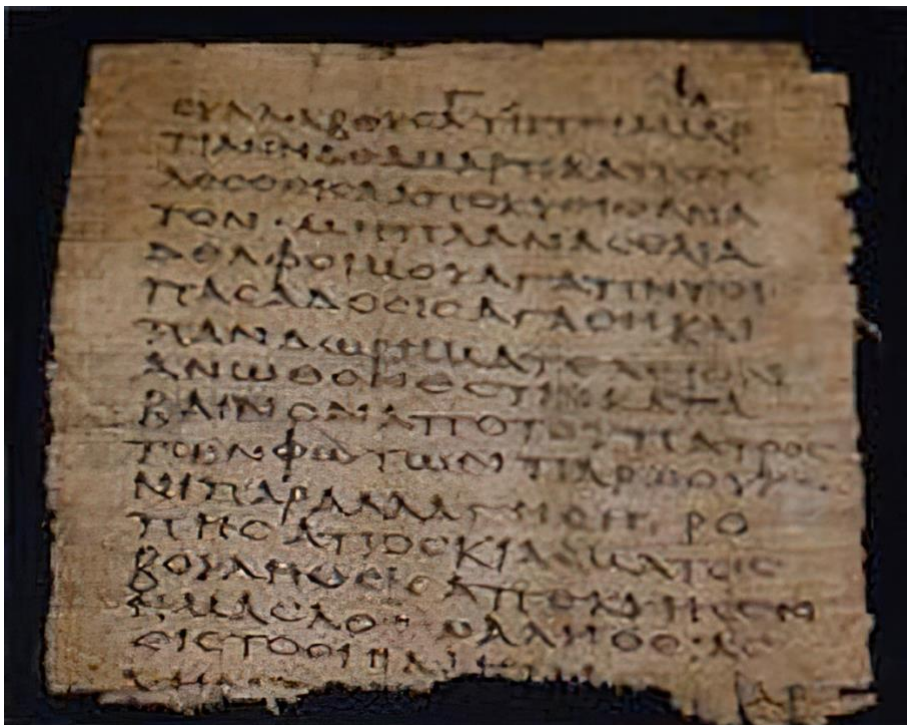 CΥΛΛΑΒΟΥCΑ ΤΙΚΤΕΙ ΑΜΑΡ
ΤΙΑΝ Η ΔΕ ΑΜΑΡΤΙΑ ΑΠΟΤΕ
ΛΕCΘΕΙCΑ ΑΠΟΚΥΕΙ ΘΑΝΑ
ΤΟΝ ΜΗ ΠΛΑΝΑCΘΑΙ Α
ΔΕΛΦΟΙ ΜΟΥ ΑΓΑΠΗΤΟΙ
ΠΑCΑ ΔΟCΙC ΑΓΑΘΗ ΚΑΙ
ΠΑΝ ΔΩΡΗΜΑ ΤΕΛΕΙΟΝ
ΑΝΩΘΕΝ ΕCΤΙΝ ΚΑΤΑ
ΒΑΙΝΟΝ ΑΠΟ ΤΟΥ ΠΑΤΡΟC
ΤΩΝ ΦΩΤΩΝ ΠΑΡ Ω ΟΥΚ Ε
ΝΙ ΠΑΡΑΛΛΑΓΗC Η ΤΡΟ
ΠΗC ΑΠΟCΚΙΑCΜΑΤΟC
ΒΟΥΛΗΘΕΙC ΑΠΕΚΥΗCΕΝ
ΗΜΑC ΛΟΓΩ ΑΛΗΘΕΙΑC
ΕΙC ΤΟ ΕΙΝΑΙ